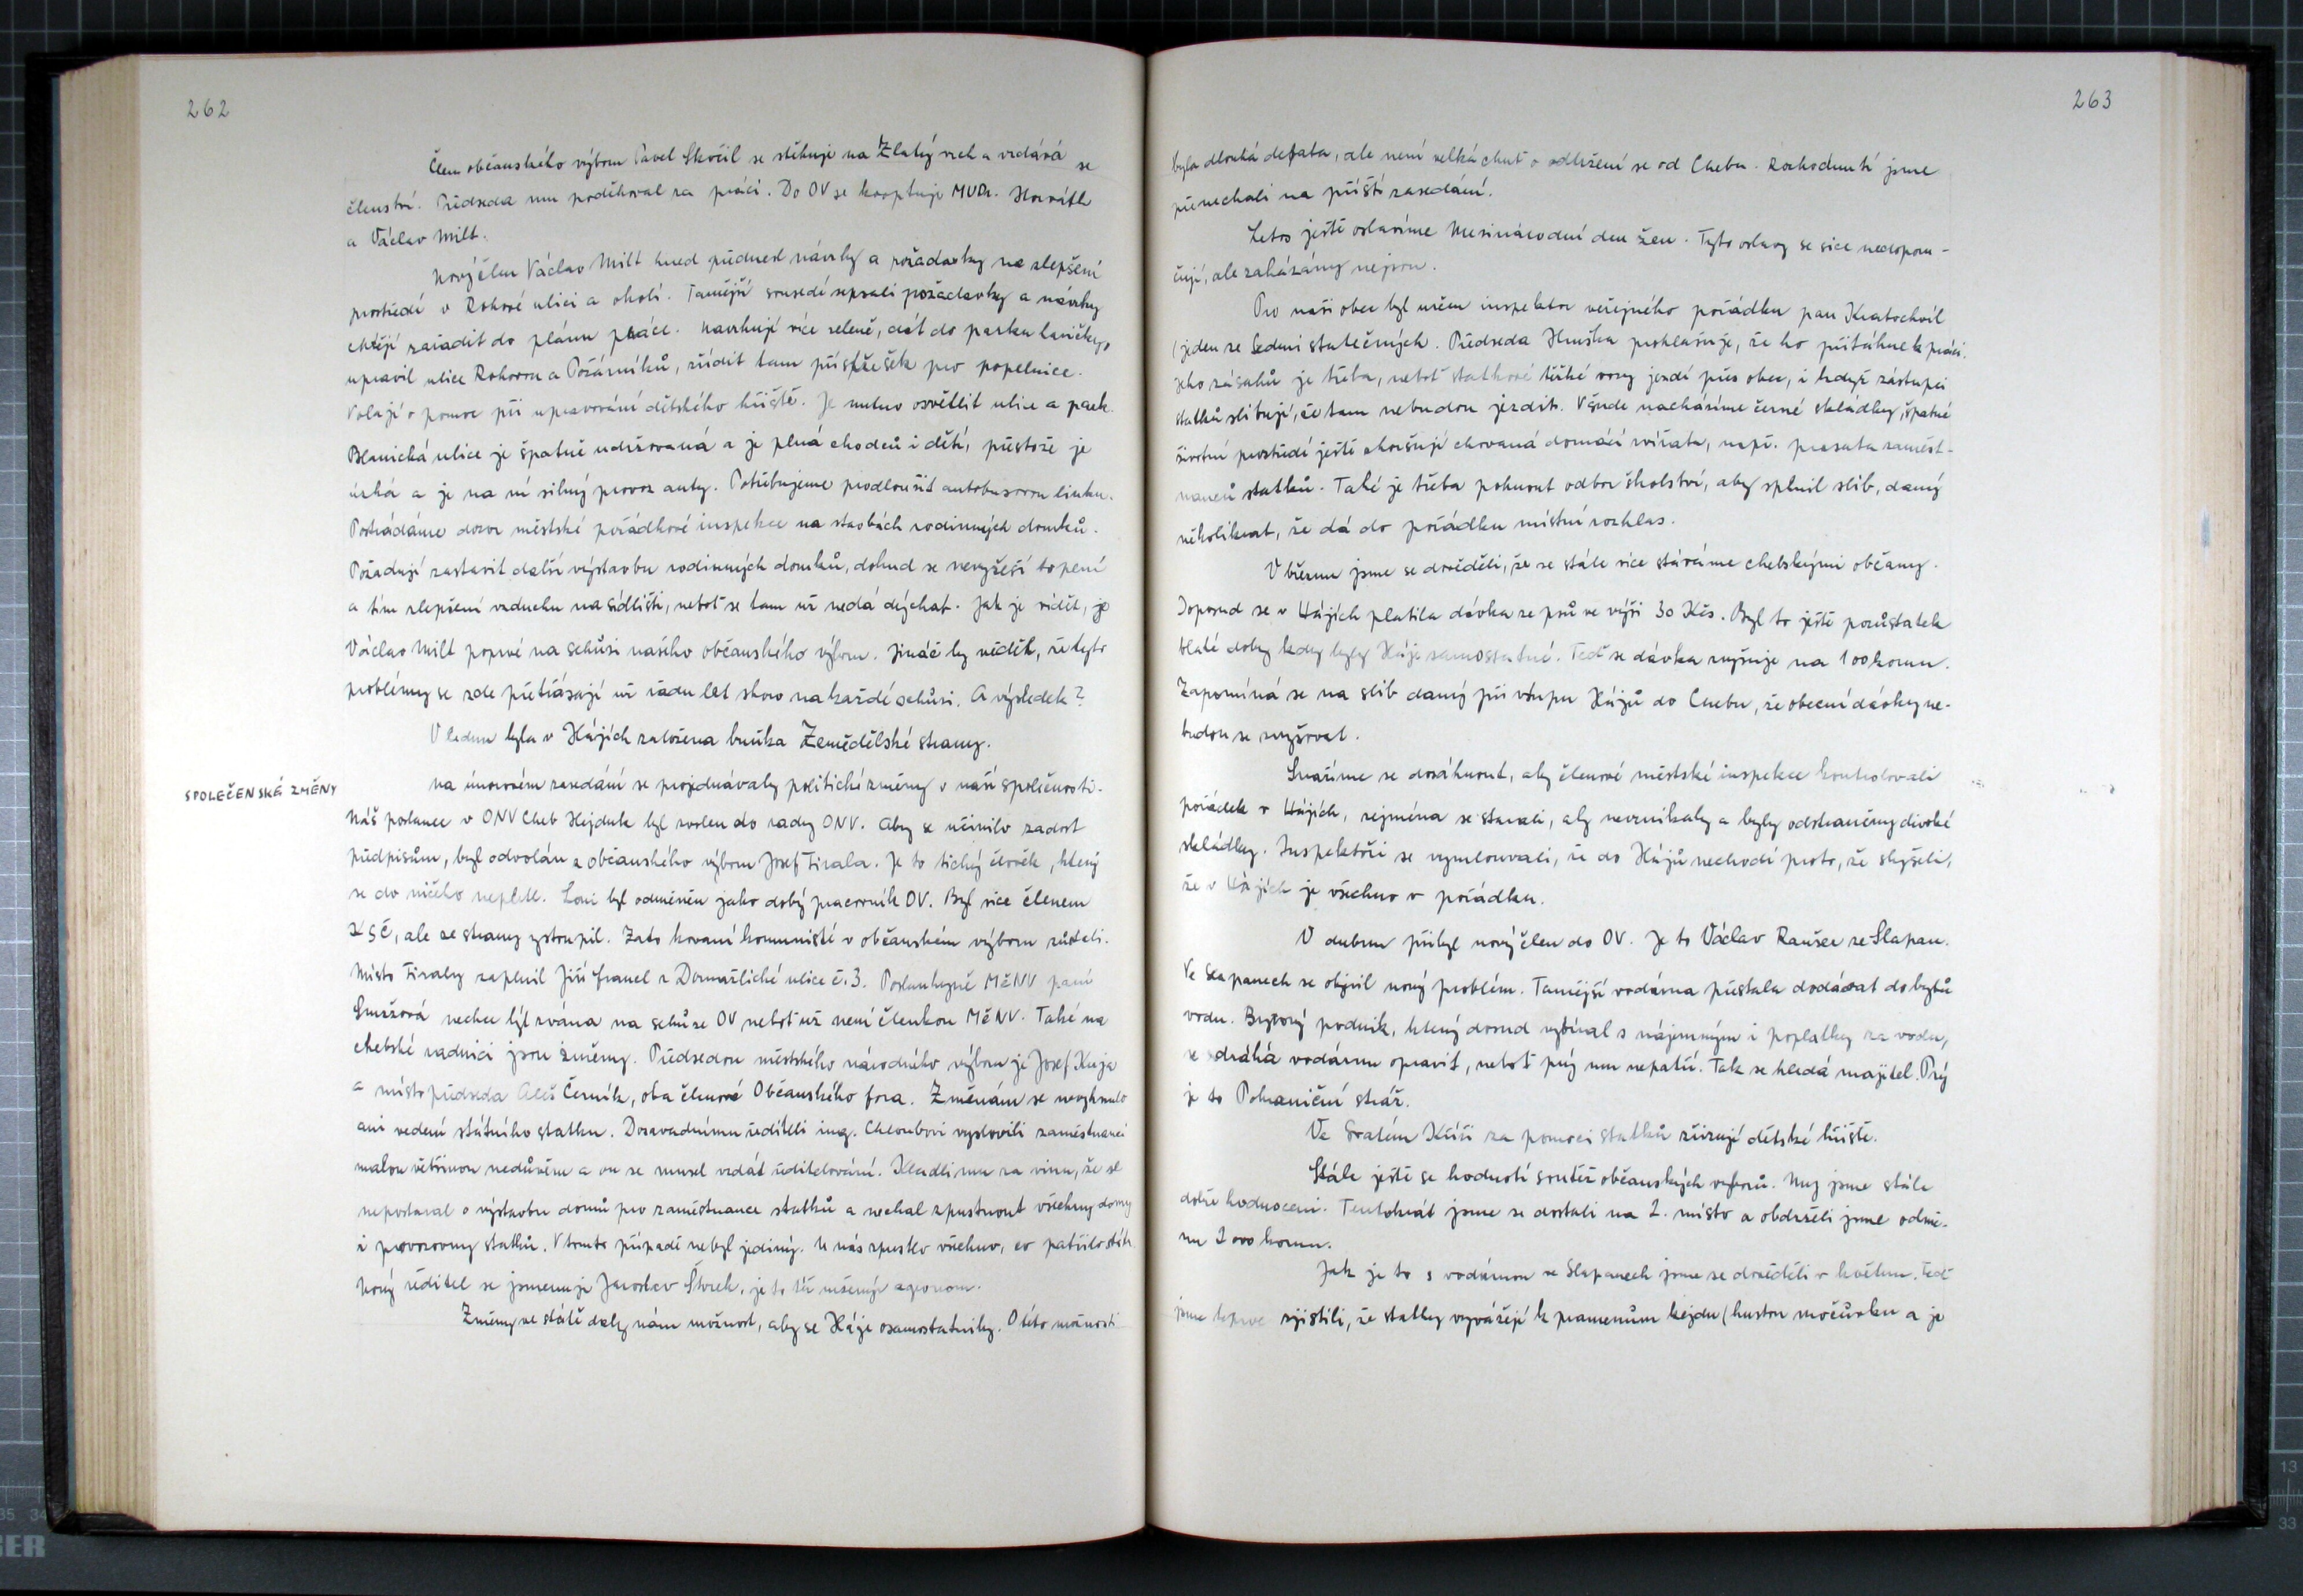 262
Člen občanského výboru Pavel Skočil se stěhuje na Zlatý vrch a vzdává se
členství. Předseda mu poděkoval za práci. Do OV se kooptuje MUDr. Horváth
a Václav Milt.
Nový člen Václav Milt hned přednesl návrhy a požadavky na zlepšení
prostředí v Rokové ulici a okolí. Tamější sousedé sepsali požadavky a návrhy
chtějí zařadit do plánu práce. Navrhují více zeleně, dát do parku lavičky,
upravil ulice Rohovou a Požárníků, zřídit tam přístřešek pro popelnice.
Volají o pomoc při upravování dětského hřiště. Je nutno osvětlit ulice a park.
Blanická ulice je špatně udržovaná a je plná chodců i dětí, přestože je
úzká a je na ní silný provoz auty. Potřebujeme prodloužit autobusovou linku.
Postrádáme dozor městské pořádkové inspekce na stavbách rodinných domků.
Požadují zastavit další výstavbu rodinných domků, dokud se nevyřeší topení
a tím zlepšení vzduchu na sídlišti, neboť se tam už nedá dýchat. Jak je vidět, je
Václav Milt poprvé na schůzi našeho občanského výboru. Jináč by věděl, že tyto
problémy se zde přetřásají už řadu let skoro na každé schůzi. A výsledek?
V lednu byla v Hájích založena buňka Zemědělské strany.
SPOLEČENSKÁ ZMĚNY
Na únorovém zasedání se projednávaly politické změny v naší společnosti.
Náš poslanec v ONV Cheb Hejduk byl zvolen do rady ONV. Aby se učinilo zadost
předpisům, byl odvolán z občanského výboru Josef Fiala. Je to tichý člověk, který
se do ničeho neplete. Loni byl odměněn jako dobrý pracovník OV. Byl sice členem
KSČ, ale ze strany vystoupil. Zato kovaní komunisté v občanském výboru zůstali.
Místo Fialy zaplnil Jiří Francl z Domažlické ulice č. 3. Poslankyně MěNV paní
nechce být zvána na schůze OV neboť už není členkou MěNV. Také na
chebské radnici jsou změny. Předsedou městského národního výboru je Josef Kuja
a místopředseda Aleš Černík, oba členové Občanského fora. Změnám se nevyhnulo
ani vedení státního statku. Dosavadnímu řediteli ing. Chloubovi vyslovili zaměstnanci
malou většinou nedůvěru a on se musel vzdát ředitelování. Kladli mu za vinu, že se
nepostaral o výstavbu domů pro zaměstnance statků a nechal zpustnout všechny domy
i provozovny statků. V tomto případě nebyl jediný. U nás zpustlo všechno, co patřilo státu.
Nový ředitel se jmenuje Jaroslav Štorek, je to též inženýr agronom.
Změny ve státě daly nám možnost, aby se Háje osamostatnily. O této možnosti
263
byla dlouhá debata, ale není velká chuť o odtržení se od Chebu. Rozhodnutí jsme
přenechali na příští zasedání.
Letos ještě oslavíme Mezinárodní den žen. Tyto oslavy se sice nedoporu-
čují, ale zakázány nejsou.
Pro naši obec byl určen inspektor veřejného pořádku pan Kratochvíl
(jeden ze Sedmi statečných. Předseda Hruška prohlašuje, že ho přitáhne k práci.
Jeho zásahů je třeba, neboť statkové těžké vozy jezdí přes obec, i když zástupci
statků slibují, že tam nebudou jezdit. Všude nacházíme černé skládky, špatné
životní prostředí ještě zhoršují chovaná domácí zvířata, např. prasata zaměst-
nanců statků. Také je třeba pohnout odbor školství, aby splnil slib, daný
několikrát, že dá do pořádku místní rozhlas.
V březnu jsme se dověděli, že se stále více stáváme chebskými občany.
Doposud se v Hájích platila dávka ze psů ve výši 30 Kčs. Byl to ještě pozůstatek
zlaté doby kdy byly Háje samostatné. Teď se dávka zvyšuje na 100 korun.
Zapomíná se na slib daný při vstupu Hájů do Chebu, že obecní dávky ne-
budou se zvyšovat.
Snažíme se dosáhnout, aby členové městské inspekce kontrolovali
pořádek v Hájích, zejména se starali, aby nevznikaly a byly odstraněny divoké
skládky. Inspektoři se vymlouvali, že do Hájů nechodí proto, že slyšeli,
že v Hájích je všechno v pořádku.
V dubnu přibyl nový člen do OV. Je to Václav Raušer ze Slapan.
Ve Slapanech se objevil nový problém. Tamější vodárna přestala dodávat do bytů
vodu. Bytový podnik, který dosud vybíral s nájemným i poplatky za vodu,
se zdráhá vodárnu opravit, neboť prý mu nepatří. Tak se hledá majitel. Prý
je to Pohraniční stráž.
Ve Svatém Kříži za pomoci statků zřizují dětské hřiště.
Stále ještě se hodnotí soutěž občanských výborů. My jsme stále
dobře hodnoceni. Tentokrát jsme se dostali na 2. místo a obdrželi jsme odmě-
nu 2 000 korun.
Jak je to s vodárnou ve Slapanech jsme se dověděli v květnu. Teď
jsme teprve zjistili, že statky vyvážejí k pramenům kejdu (hustou močůvku a je